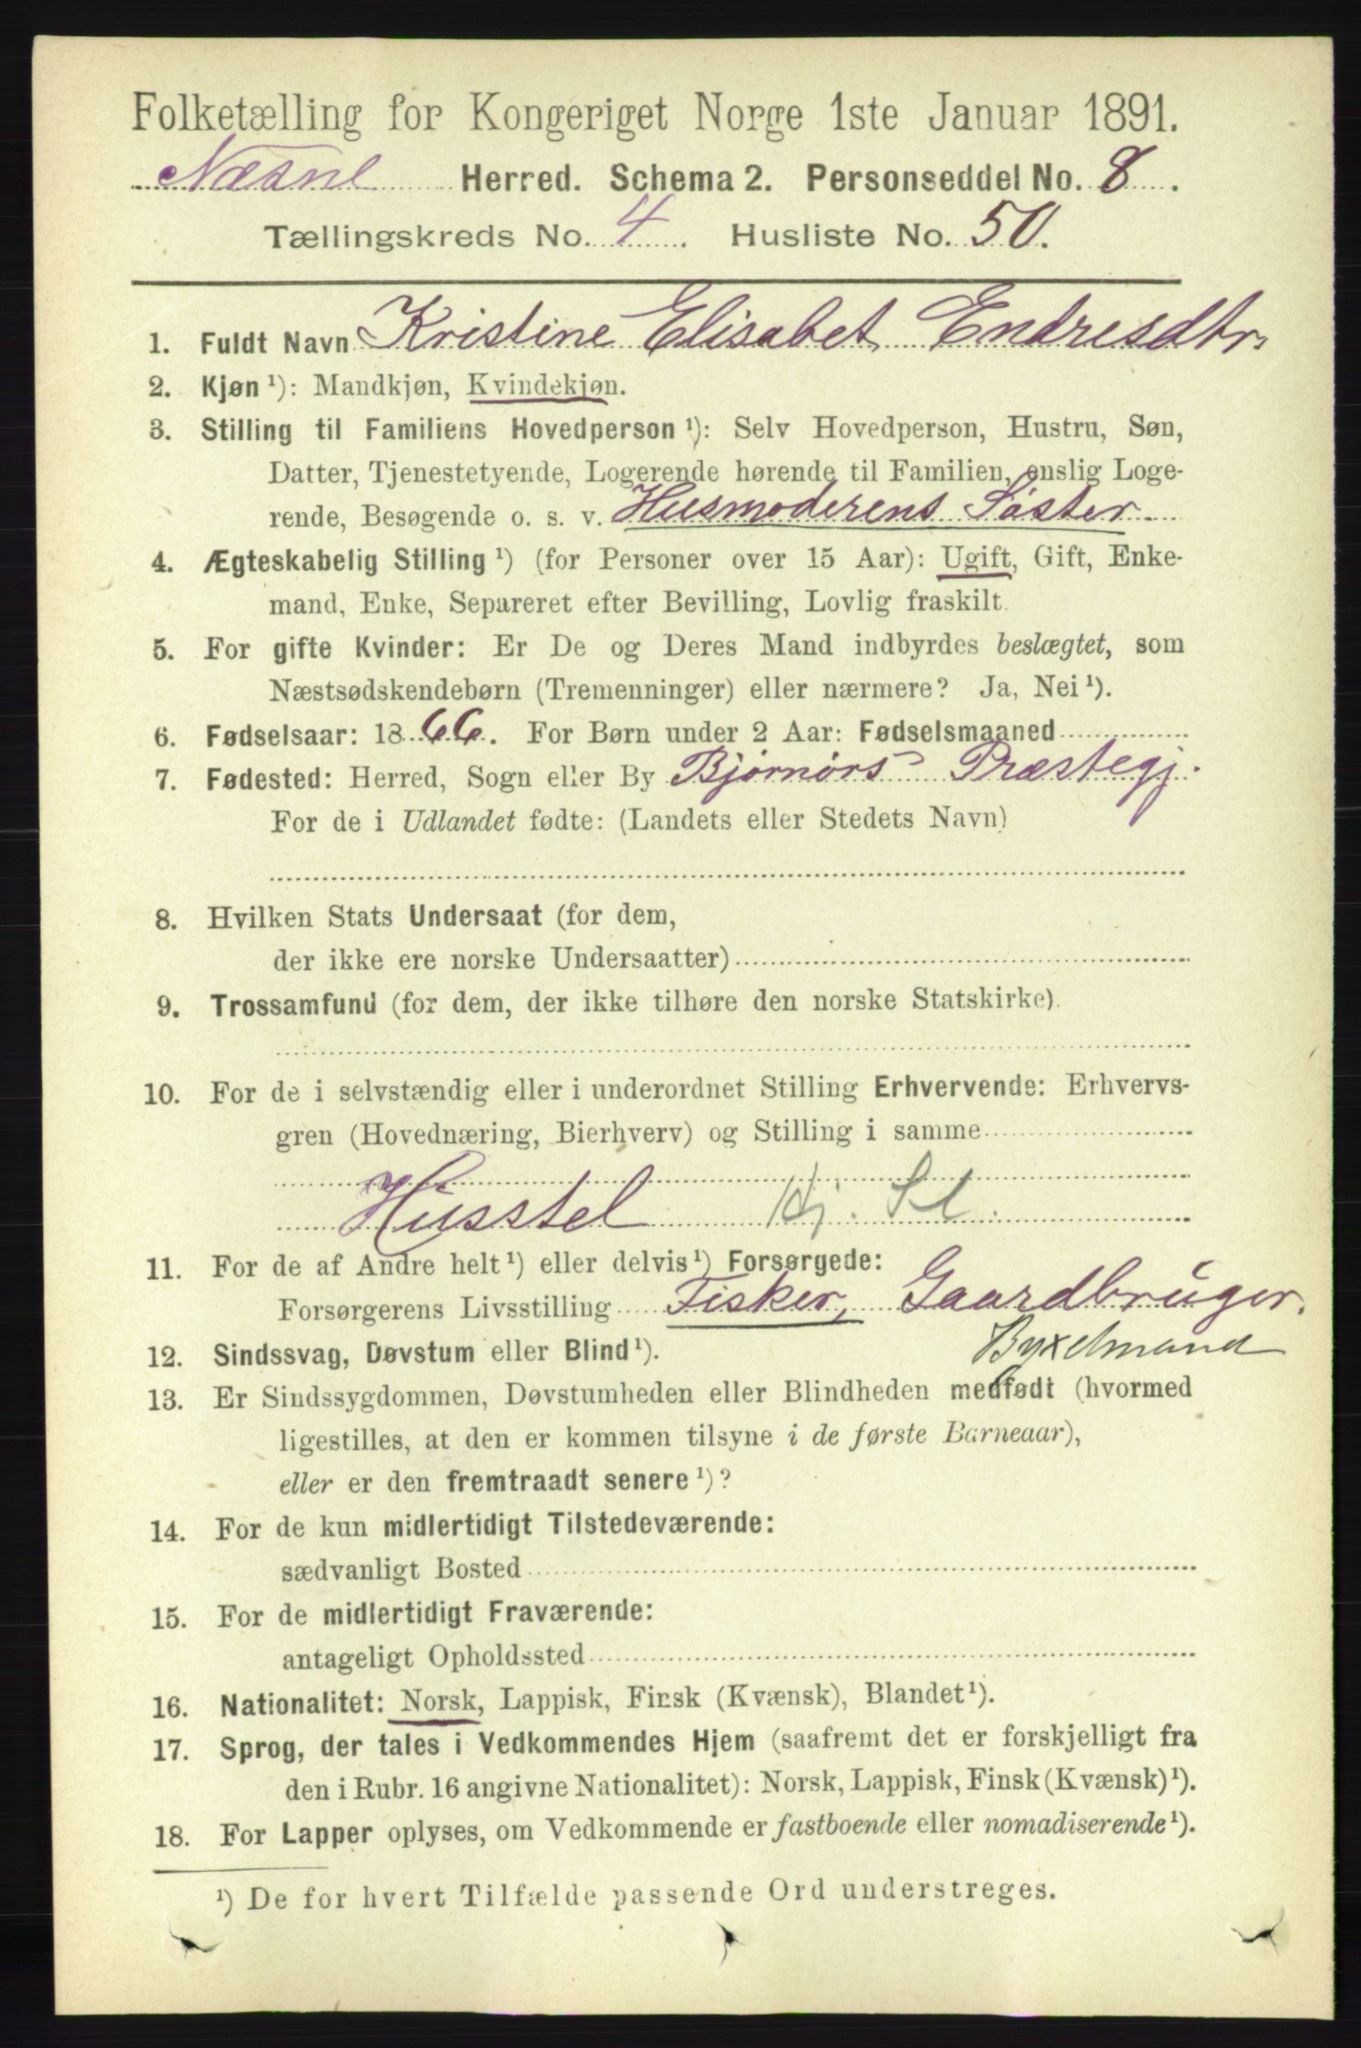 Folketælling for Kongeriget Norge 1ste Januar 1891.
Næsne Herred. Schema 2. Personseddel No. 8.
Tællingskreds No. 4. Husliste No. 50.
1. Fuldt Navn Kristine Elisabet Endresdtr.
2. Kjøn ¹): Mandkjøn, Kvindekjøn.
3. Stilling til Familiens Hovedperson ¹): Selv Hovedperson, Hustru, Søn,
Datter, Tjenestetyende, Logerende hørende til Familien, enslig Loge-
rende, Besøgende o. s. v. Husmoderens Søster.
4. Ægteskabelig Stilling ¹) (for Personer over 15 Aar): Ugift, Gift, Enke-
mand, Enke, Separeret efter Bevilling, Lovlig fraskilt.
5. For gifte Kvinder: Er De og Deres Mand indbyrdes beslægtet, som
Næstsødskendebørn (Tremenninger) eller nærmere? Ja, Nei ¹).
6. Fødselsaar: 1866. For Børn under 2 Aar: Fødselsmaaned
7. Fødested: Herred, Sogn eller By Bjørnørs Præstegj.
For de i Udlandet fødte: (Landets eller Stedets Navn)
8. Hvilken Stats Undersaat (for dem,
der ikke ere norske Undersaatter)
9. Trossamfund (for dem, der ikke tilhøre den norske Statskirke).
10. For de i selvstændig eller i underordnet Stilling Erhvervende: Erhvervs-
gren (Hovednæring, Bierhverv) og Stilling i samme
Husstel Hj. Sl.
11. For de af Andre helt ¹) eller delvis ¹) Forsørgede:
Forsørgerens Livsstilling Fisker, Gaardbruger.
Byxelmand
12. Sindssvag, Døvstum eller Blind ¹).
13. Er Sindssygdommen, Døvstumheden eller Blindheden medfødt (hvormed
ligestilles, at den er kommen tilsyne i de første Barneaar),
eller er den fremtraadt senere ¹)?
14. For de kun midlertidigt Tilstedeværende:
sædvanligt Bosted
15. For de midlertidigt Fraværende:
antageligt Opholdssted
16. Nationalitet: Norsk, Lappisk, Finsk (Kvænsk), Blandet ¹).
17. Sprog, der tales i Vedkommendes Hjem (saafremt det er forskjelligt fra
den i Rubr. 16 angivne Nationalitet): Norsk, Lappisk, Finsk (Kvænsk) ¹).
18. For Lapper oplyses, om Vedkommende er fastboende eller nomadiserende ¹).
¹) De for hvert Tilfælde passende Ord understreges.